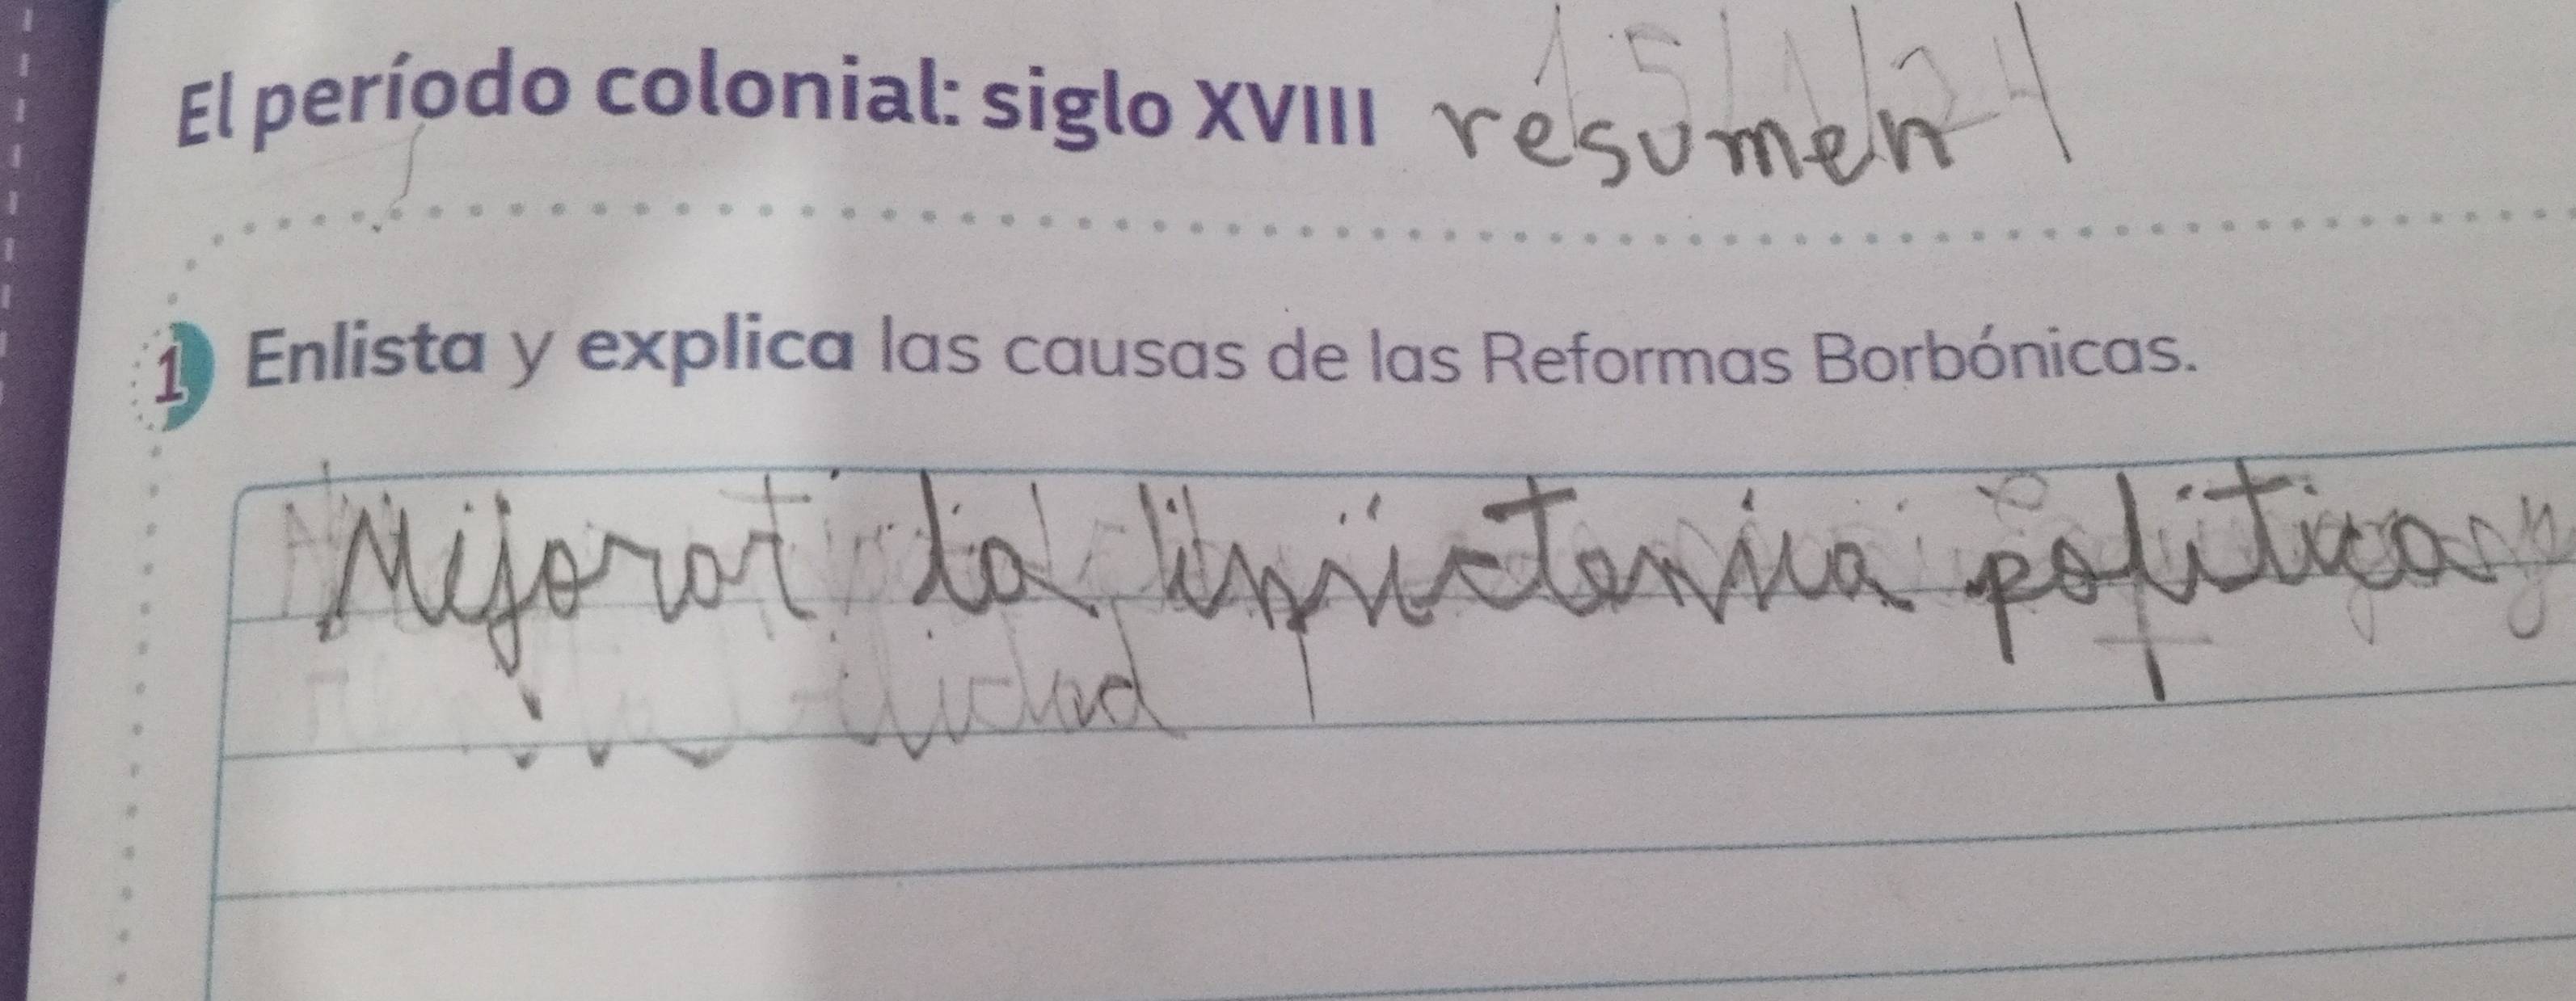 El período colonial: siglo XVIII resumen
1 Enlista y explica las causas de las Reformas Borbónicas.
Mejorar la politica y